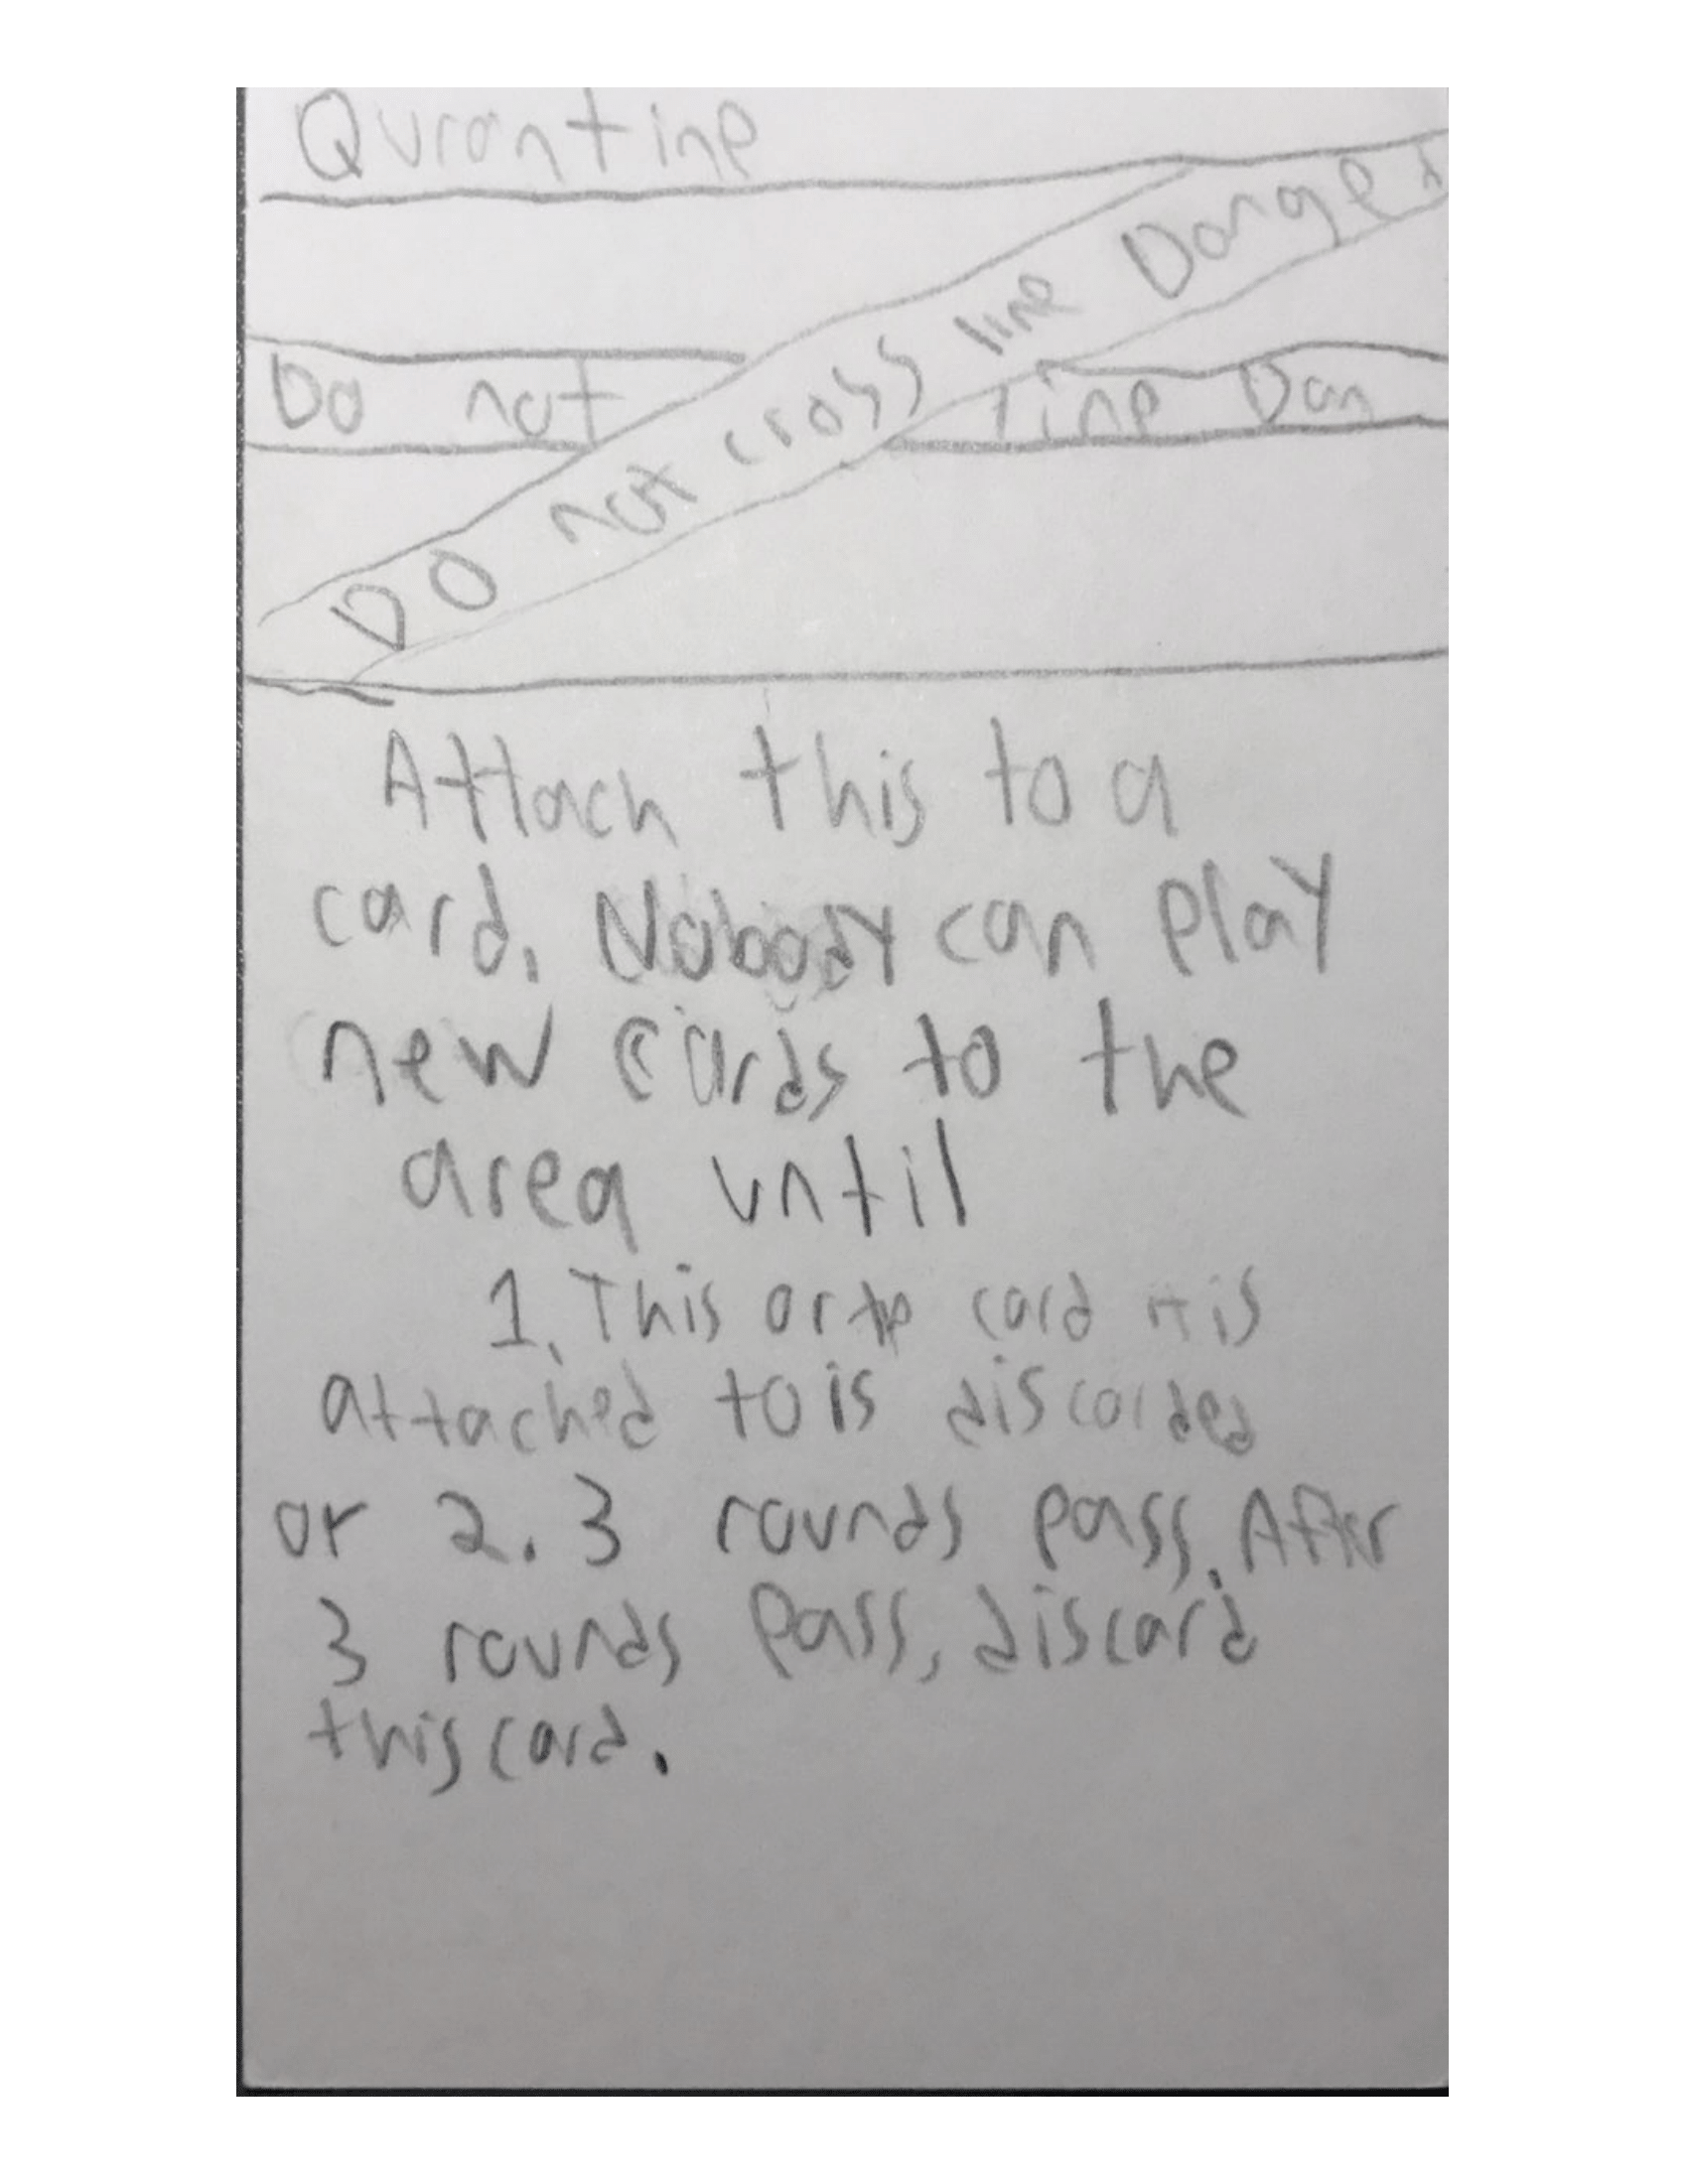 Qurantine
Do not cross line Danger
Do not line Dan
Attach this to a
card. Nobody can play
new cards to the
area until
1. This or the card it is
attached to is discarded
or 2. 3 rounds pass. After
3 rounds pass, discard
this card.